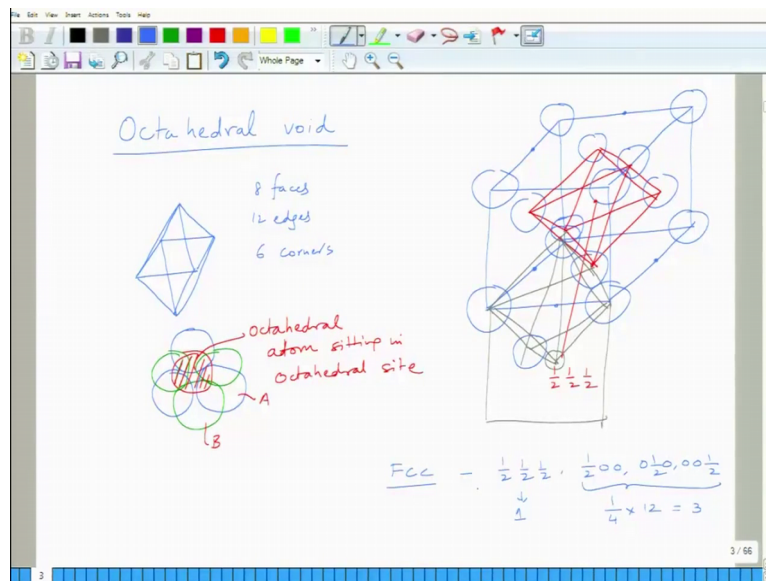 File Edit View Insert Actions Tools Help
B I
Whole Page
Octahedral void
8 faces
12 edges
6 corners
Octahedral
atom sitting in
Octahedral site
A
B
1/2 1/2 1/2
FCC – 1/2 1/2 1/2, 1/2 00, 0 1/2 0, 00 1/2
↓
1
1/4 × 12 = 3
3 / 66
3